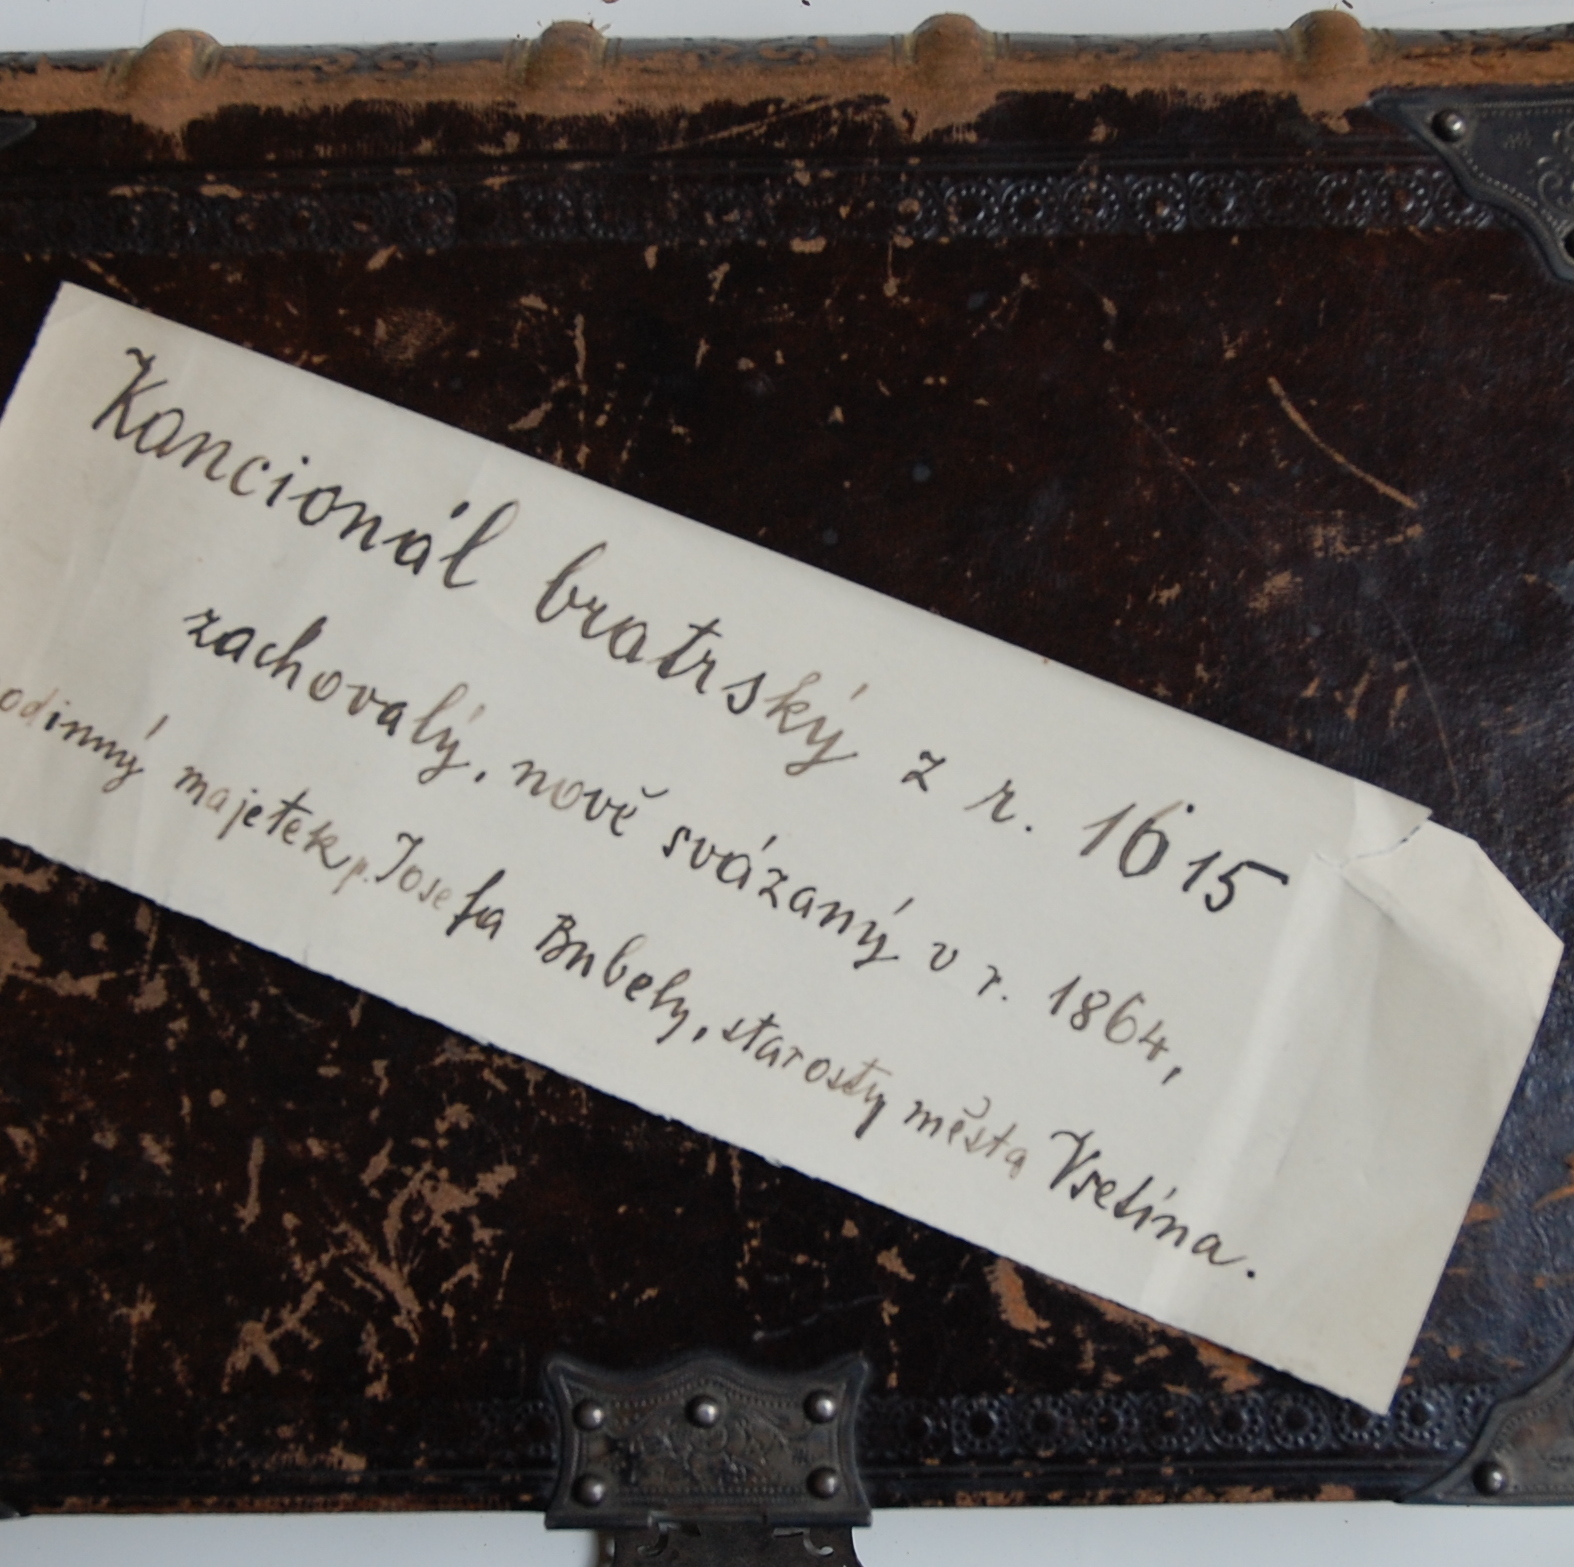 Kancionál bratrský z r. 1615
zachovalý, nově svázaný v r. 1864,
odinný majetek p. Josefa Bubely, starosty města Vsetína.